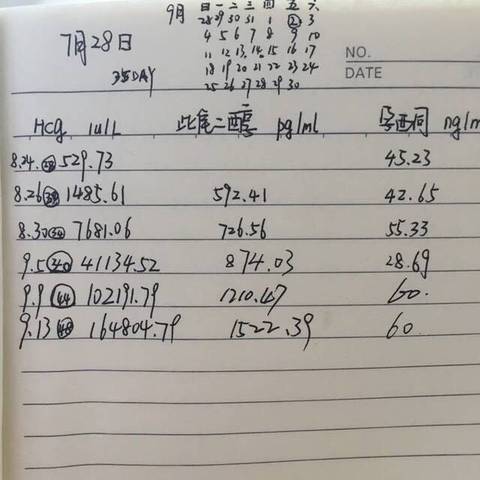 9月 日 一 二 三 四 五 六
28 29 30 31 1 2 3
7月28日
4 5 6 7 8 9 10
11 12 13 14 15 16 17
NO.
35DAY
18 19 20 21 22 23 24
DATE
25 26 27 28 29 30
Hcg iu/L 雌二醇 pg/ml 孕酮 ng/m
8.24. 529.73 45.23
8.26 1485.61 592.41 42.65
8.30 7681.06 726.56 55.33
9.5 40 41134.52 874.03 28.69
9.9 44 102191.79 1210.47 60.
9.13 48 164804.79 1522.39 60